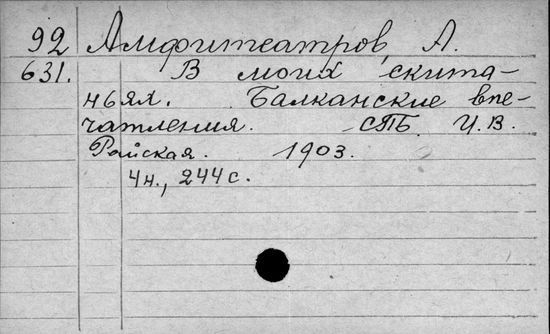 92 Амфитеатров, А.
631. В моих скита-
ньях. Балканские впе-
чатления. СПБ. И.В.
Райская. 1903.
4н., 244 с.